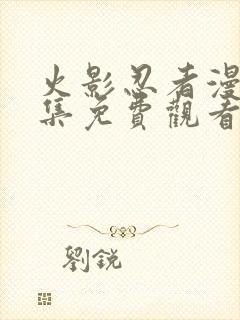 火影忍者漫
集免費觀看
劉銳